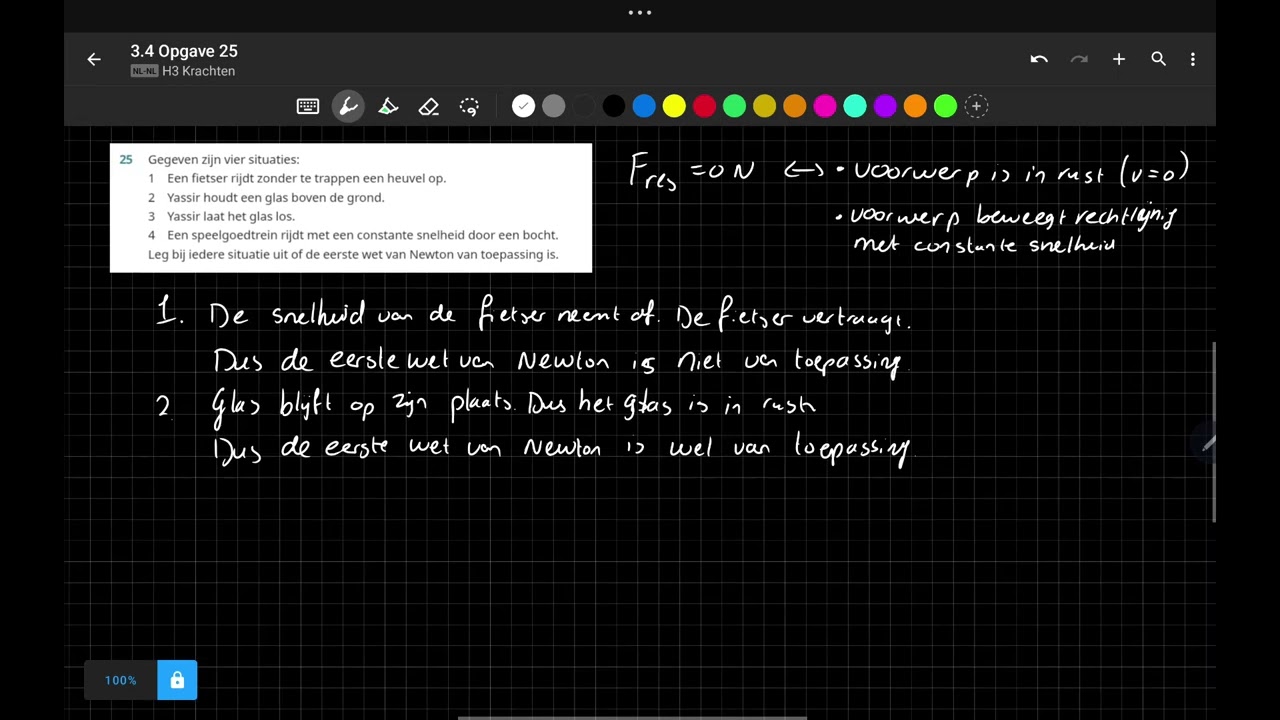 3.4 Opgave 25
NL-NL H3 Krachten
25 Gegeven zijn vier situaties:
1 Een fietser rijdt zonder te trappen een heuvel op.
2 Yassir houdt een glas boven de grond.
3 Yassir laat het glas los.
4 Een speelgoedtrein rijdt met een constante snelheid door een bocht.
Leg bij iedere situatie uit of de eerste wet van Newton van toepassing is.
Fres = 0 N ↔ • voorwerp is in rust (v=0)
• voorwerp beweegt rechtlijnig
met constante snelheid
1. De snelheid van de fietser neemt af. De fietser vertraagt.
Dus de eerste wet van Newton is niet van toepassing.
2. Glas blijft op zijn plaats. Dus het glas is in rust
Dus de eerste wet van Newton is wel van toepassing.
100%